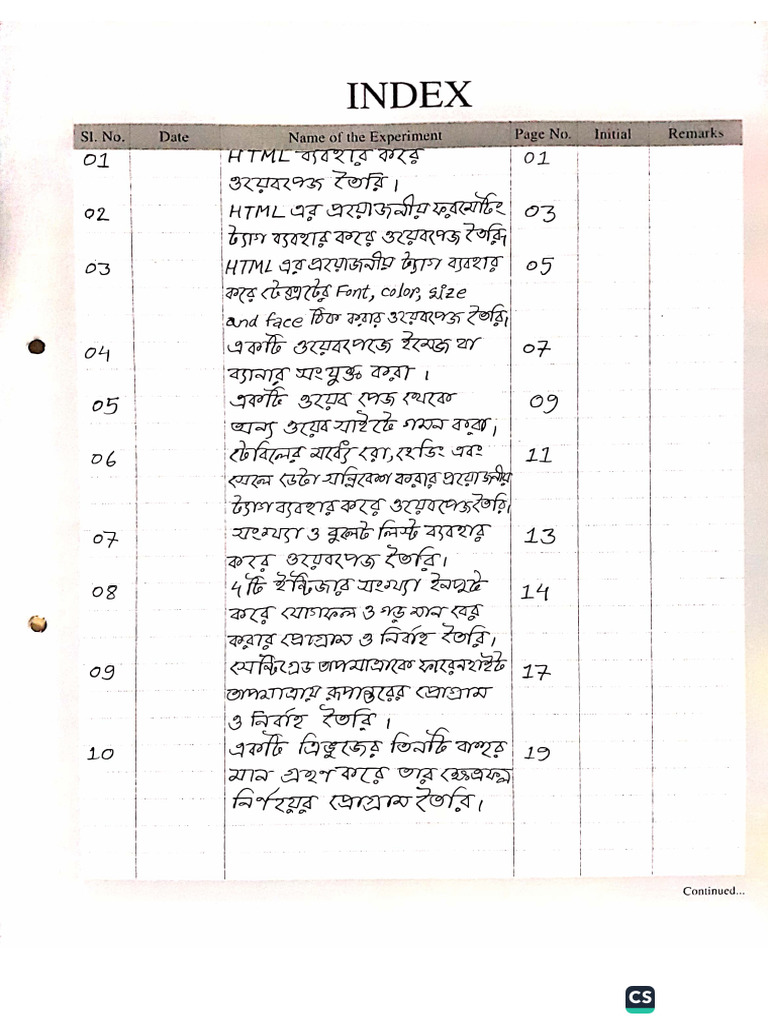 INDEX
Sl. No. Date Name of the Experiment Page No. Initial Remarks
01 HTML ব্যবহার করে 01
ওয়েবপেজ তৈরি।
02 HTML এর প্রয়োজনীয় ফরমেটিং 03
ট্যাগ ব্যবহার করে ওয়েবপেজ তৈরি।
03 HTML এর প্রয়োজনীয় ট্যাগ ব্যবহার 05
করে টেক্সটের Font, color, size
and face ঠিক করার ওয়েবপেজ তৈরি।
04 একটি ওয়েবপেজে ইমেজ বা 07
ব্যানার সংযুক্ত করা।
05 একটি ওয়েব পেজ থেকে 09
অন্য ওয়েব সাইটে গমন করা।
06 টেবিলের মধ্যে রো, হেডিং এবং 11
সেলে ডেটা সন্নিবেশ করার প্রয়োজনীয়
ট্যাগ ব্যবহার করে ওয়েবপেজ তৈরি।
07 সংখ্যা ও বুলেট লিস্ট ব্যবহার 13
করে ওয়েবপেজ তৈরি।
08 4টি ইন্টিজার সংখ্যা ইনপুট 14
করে যোগফল ও গড় মান বের
করার প্রোগ্রাম ও নির্বাহ তৈরি।
09 সেন্টিগ্রেড তাপমাত্রাকে ফারেনহাইট 17
তাপমাত্রায় রূপান্তরের প্রোগ্রাম
ও নির্বাহ তৈরি।
10 একটি ত্রিভুজের তিনটি বাহুর 19
মান গ্রহণ করে তার ক্ষেত্রফল
নির্ণয়ের প্রোগ্রাম তৈরি।
Continued...
CS